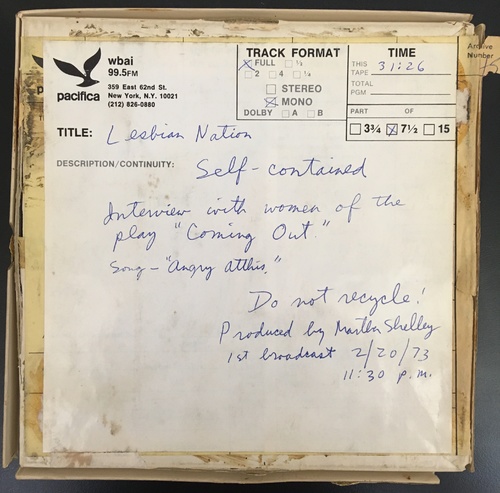 wbai
99.5FM
pacifica
359 East 62nd St.
New York, N.Y. 10021
(212) 826-0880
TRACK FORMAT
FULL ½
2 4 ¼
STEREO
MONO
DOLBY A B
TIME
THIS TAPE 31:26
TOTAL PGM.
PART OF
3¾ 7½ 15
Archive Number
TITLE: Lesbian Nation
DESCRIPTION/CONTINUITY: Self-contained
Interview with women of the
play "Coming Out."
Song - "Angry Atthis."
Do not recycle!
Produced by Martha Shelley
1st broadcast 2/20/73
11:30 p.m.